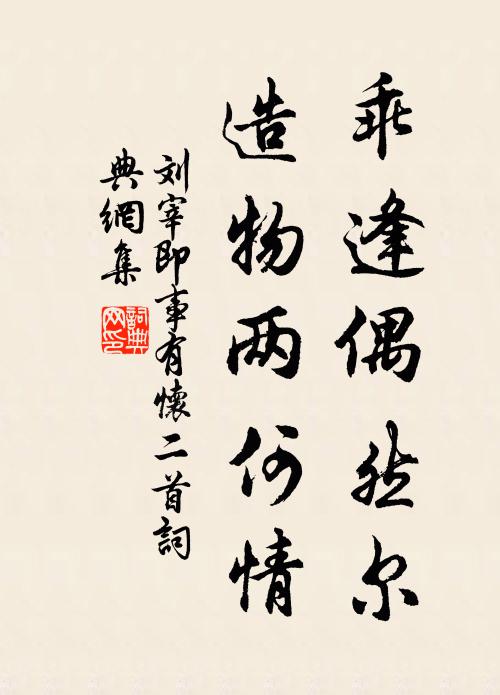 乖逢偶然尔
造物两何情
刘宰即事有懷二首詞
典網集
詞典
网印